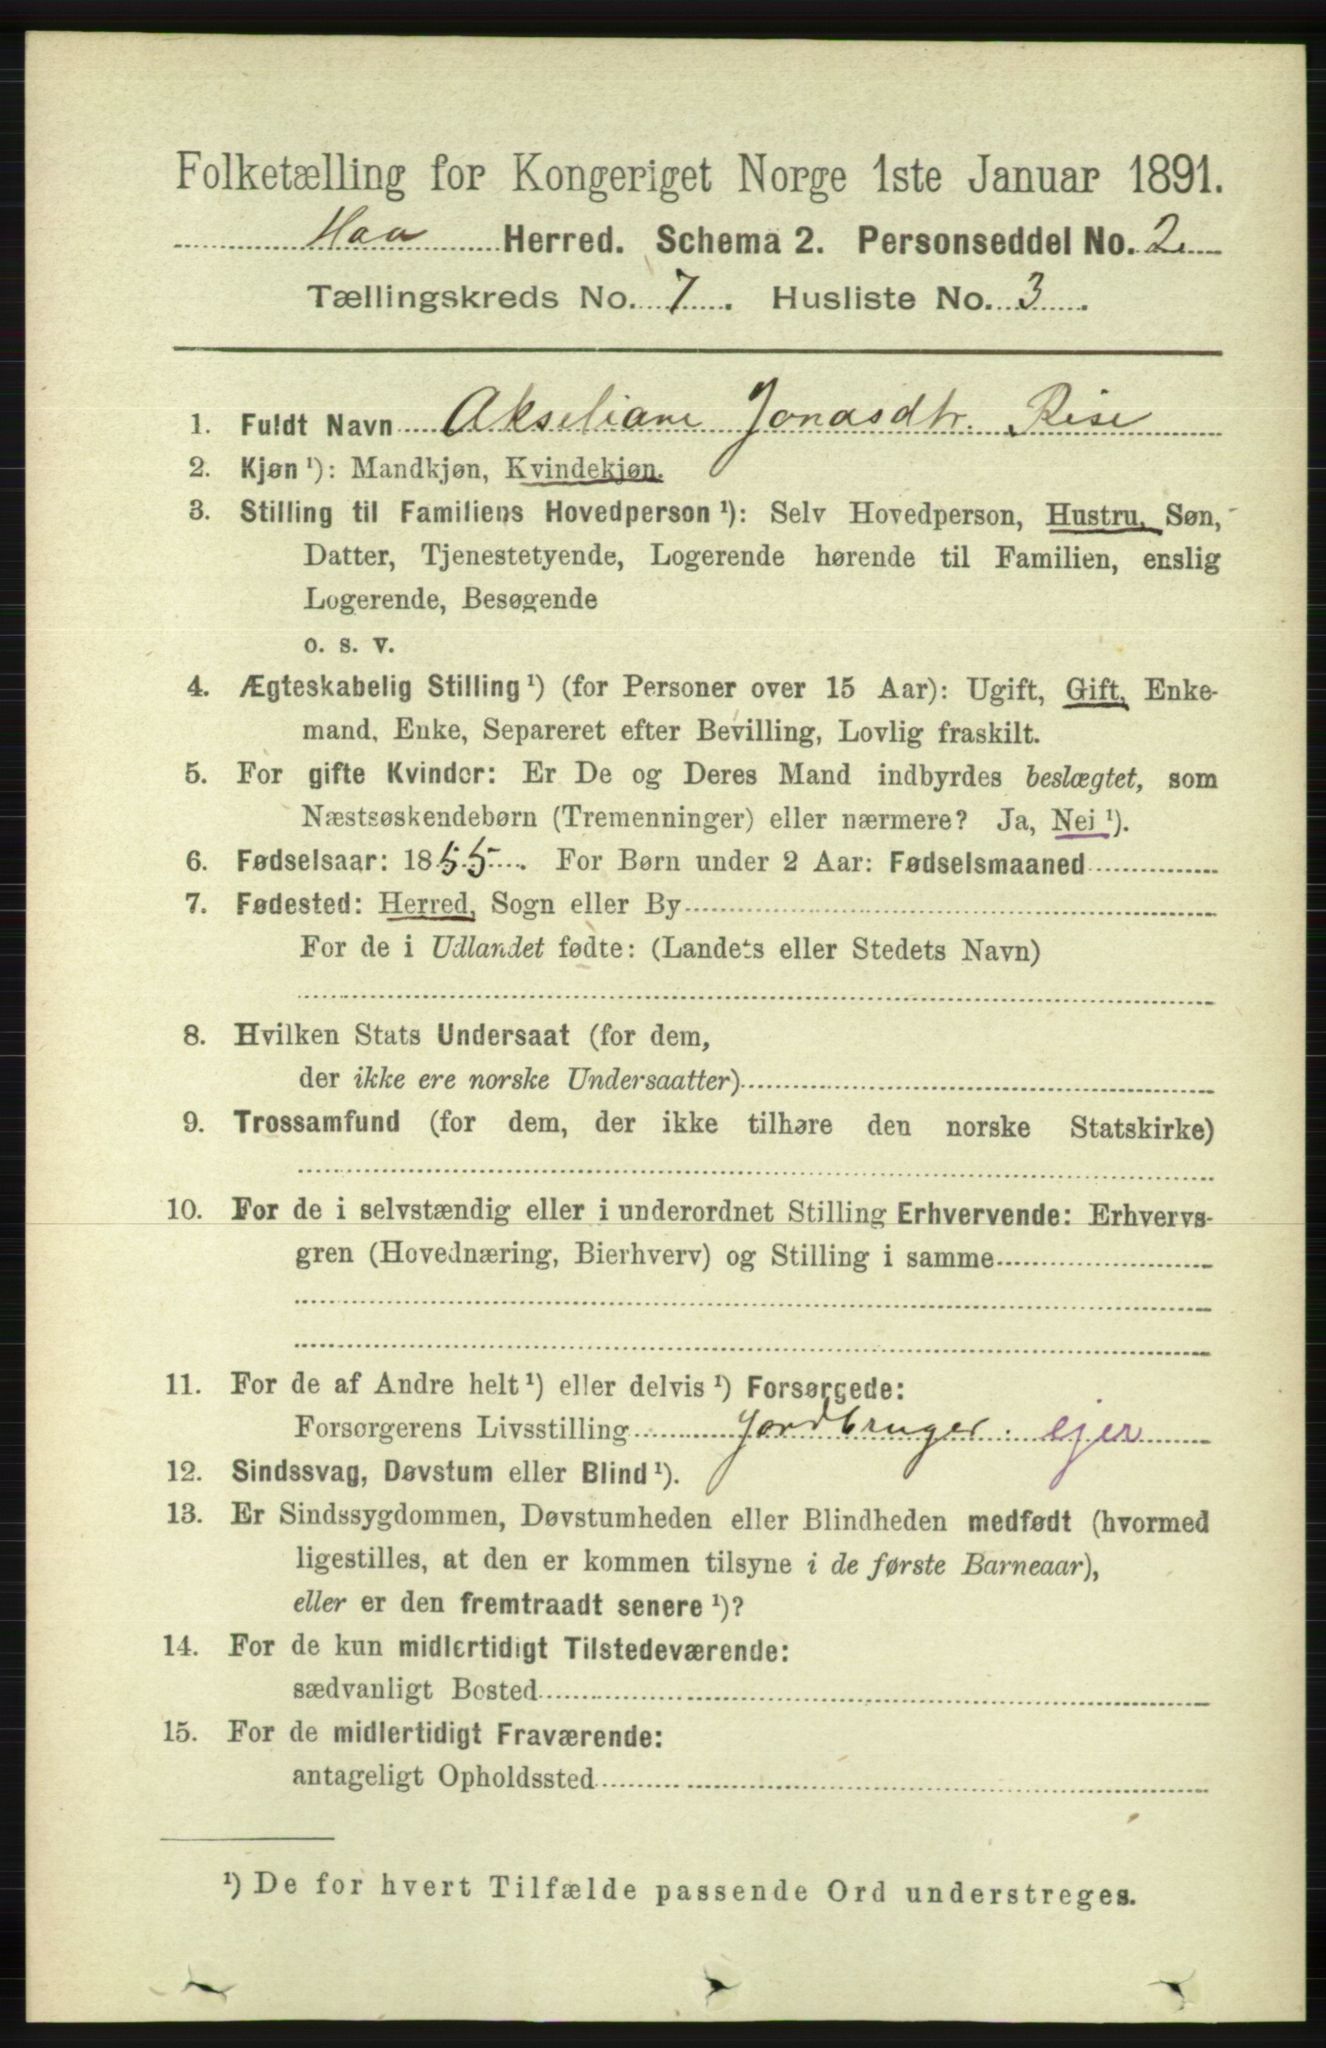 Folketælling for Kongeriget Norge 1ste Januar 1891.
Haa Herred. Schema 2. Personseddel No. 2.
Tællingskreds No. 7. Husliste No. 3.
1. Fuldt Navn Akseliane Jonasdtr. Rise
2. Kjøn ¹): Mandkjøn, Kvindekjøn.
3. Stilling til Familiens Hovedperson ¹): Selv Hovedperson, Hustru, Søn,
Datter, Tjenestetyende, Logerende hørende til Familien, enslig
Logerende, Besøgende
o. s. v.
4. Ægteskabelig Stilling ¹) (for Personer over 15 Aar): Ugift, Gift, Enke-
mand, Enke, Separeret efter Bevilling, Lovlig fraskilt.
5. For gifte Kvinder: Er De og Deres Mand indbyrdes beslægtet, som
Næstsøskendebørn (Tremenninger) eller nærmere? Ja, Nei ¹).
6. Fødselsaar: 1855. For Børn under 2 Aar: Fødselsmaaned
7. Fødested: Herred, Sogn eller By
For de i Udlandet fødte: (Landets eller Stedets Navn)
8. Hvilken Stats Undersaat (for dem,
der ikke ere norske Undersaatter)
9. Trossamfund (for dem, der ikke tilhøre den norske Statskirke)
10. For de i selvstændig eller i underordnet Stilling Erhvervende: Erhvervs-
gren (Hovednæring, Bierhverv) og Stilling i samme
11. For de af Andre helt ¹) eller delvis ¹) Forsørgede:
Forsørgerens Livsstilling Jordbruger. ejer
12. Sindssvag, Døvstum eller Blind ¹).
13. Er Sindssygdommen, Døvstumheden eller Blindheden medfødt (hvormed
ligestilles, at den er kommen tilsyne i de første Barneaar),
eller er den fremtraadt senere ¹)?
14. For de kun midlertidigt Tilstedeværende:
sædvanligt Bosted
15. For de midlertidigt Fraværende:
antageligt Opholdssted
¹) De for hvert Tilfælde passende Ord understreges.